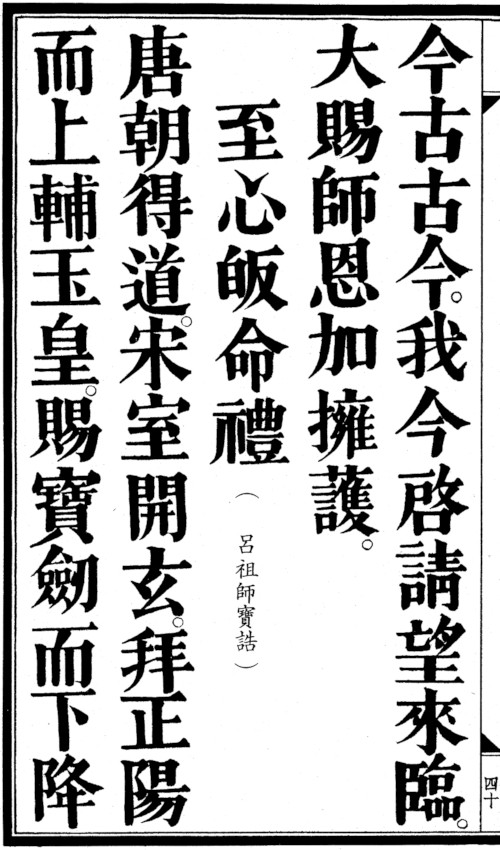 今古古今。我今啓請望來臨。
大賜師恩加擁護。
至心皈命禮
（呂祖師寶誥）
唐朝得道。宋室開玄。拜正陽
而上輔玉皇。賜寶劍而下降
四十